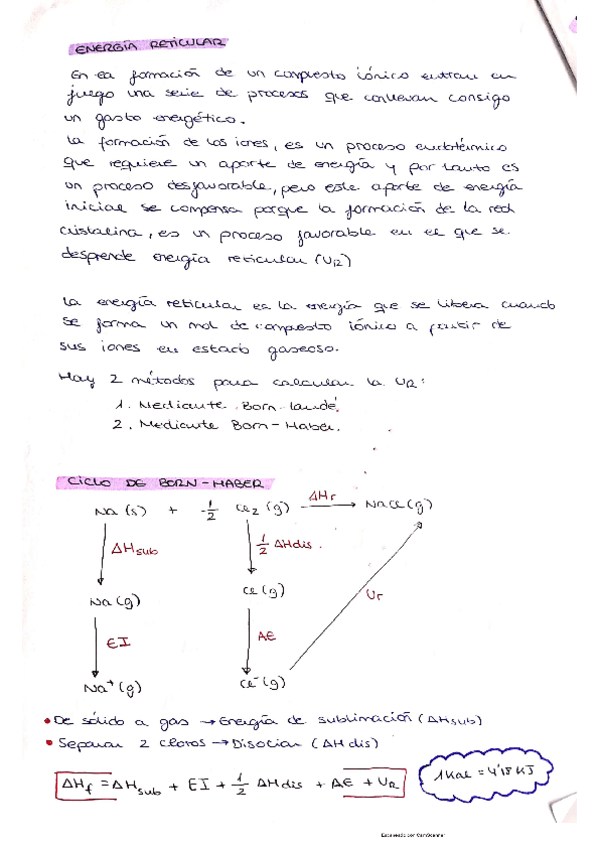 ENERGÍA RETICULAR
En la formación de un compuesto iónico entran en
juego una serie de procesos que conllevan consigo
un gasto energético.
La formación de los iones, es un proceso endotérmico
que requiere un aporte de energía y por tanto es
un proceso desfavorable, pero este aporte de energía
inicial se compensa porque la formación de la red
cristalina, es un proceso favorable en el que se
desprende energía reticular (UR)
La energía reticular es la energía que se libera cuando
se forma un mol de compuesto iónico a partir de
sus iones en estado gaseoso.
Hay 2 métodos para calcular la UR:
1. Mediante Born-Landé.
2. Mediante Born-Haber.
CICLO DE BORN-HABER
Na (s) + 1/2 Cl2 (g) → ΔHr NaCl (g)
ΔHsub 1/2 ΔHdis.
Na (g) Cl (g)
Ur
EI AE
Na+ (g) Cl- (g)
• De sólido a gas → Energía de sublimación (ΔHsub)
• Separar 2 cloros → Disociar (ΔHdis)
ΔHf = ΔHsub + EI + 1/2 ΔHdis + AE + UR
1Kcal = 4'18 KJ
Escaneado con CamScanner